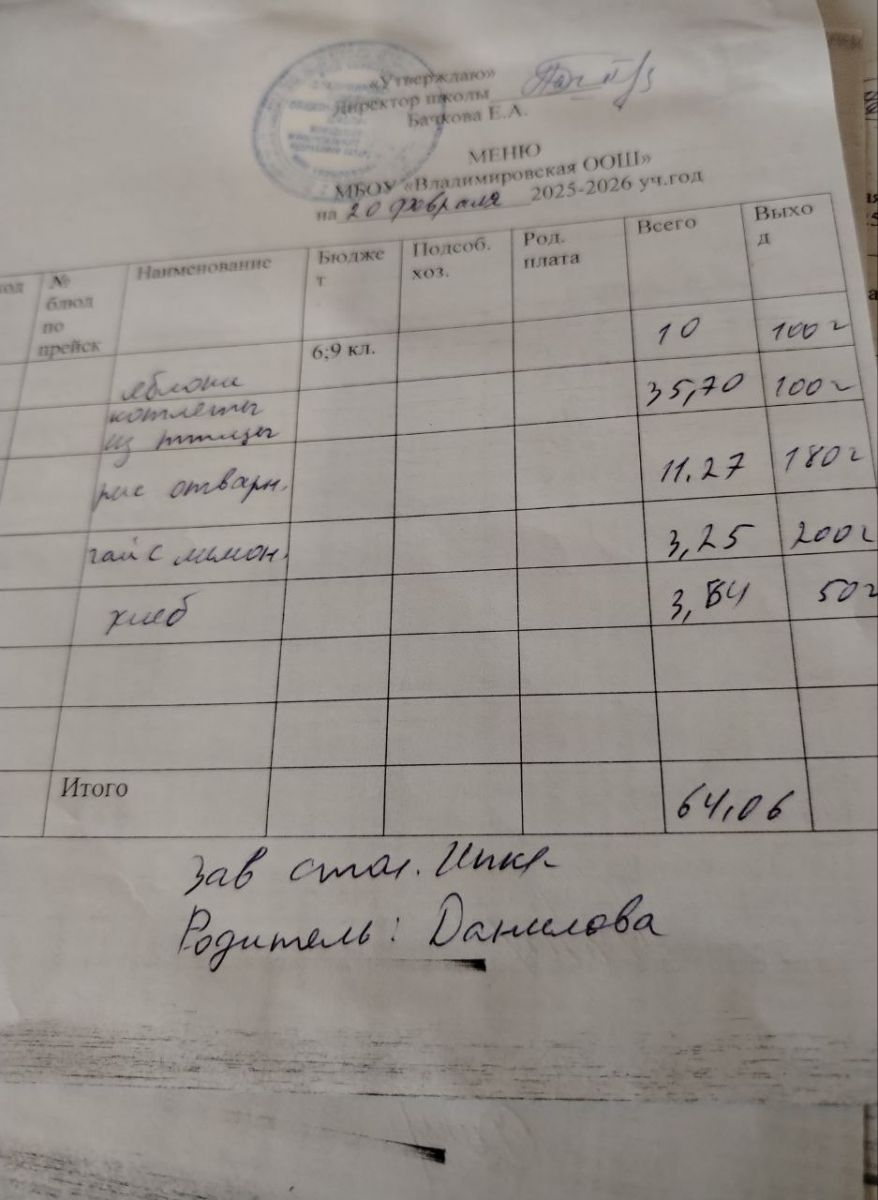 «Утверждаю»
Директор школы
Бачкова Е.А.
МЕНЮ
МБОУ «Владимировская ООШ»
на 20 февраля 2025-2026 уч.год
№ блюд по прейск Наименование Бюджет Подсоб. хоз. Род. плата Всего Выход
6;9 кл.
яблоки 10 100г
котлеты из птицы 35,70 100г
рис отварн. 11.27 180г
чай с лимон. 3,25 200г
хлеб 3,84 50г
Итого 64,06
Зав стол.
Родитель: Данилова